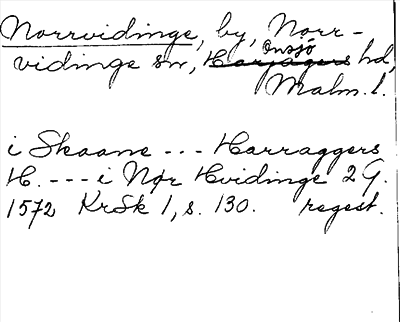 Norrvidinge, by, Norr-
vidinge sn, Harjagers Onsjö hd,
Malm. l.
i Skaane --- Harraggers
H. --- i Nør Hvidinge 2 G.
1572 KrSk 1, s. 130. regest.